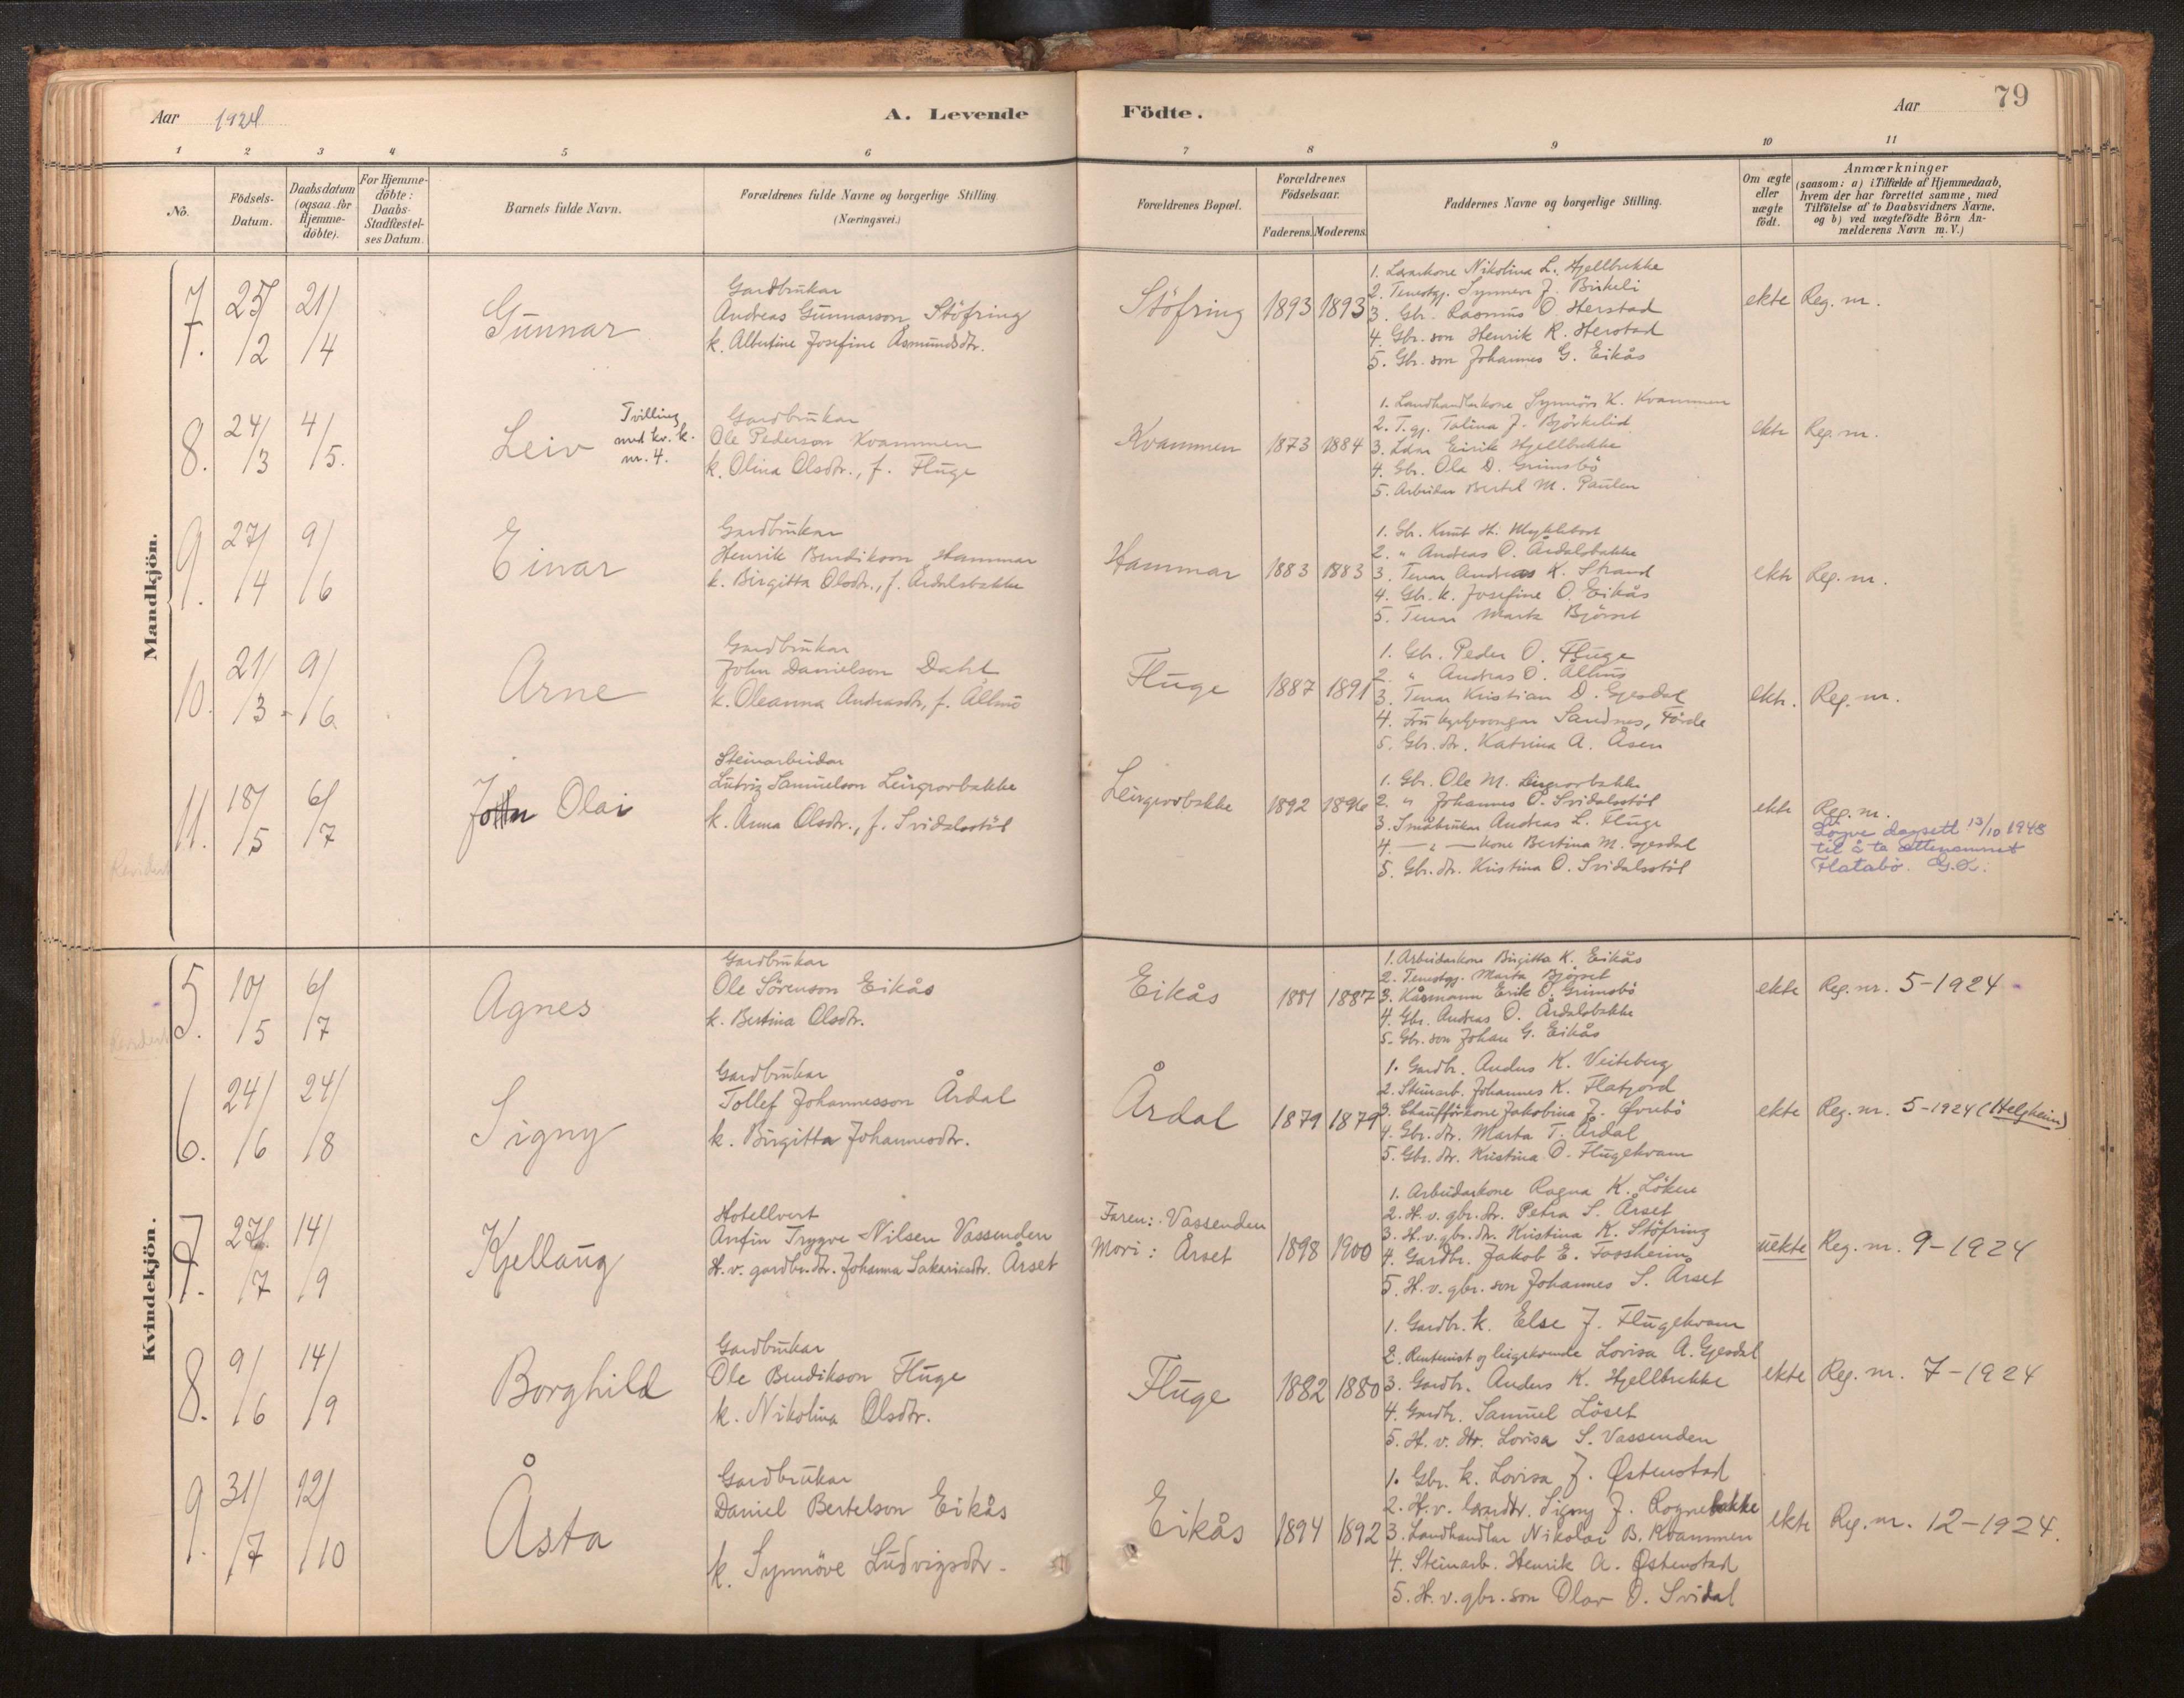 Aar 1924
A. Levende
Födte.
Aar
79
1 2 3 4 5 6 7 8 9 10 11
No.
Födsels-Datum.
Daabsdatum (ogsaa for Hjemme-döbte).
For Hjemme-döbte: Daabs-Stadfæstel-ses Datum.
Barnets fulde Navn.
Forældrenes fulde Navne og borgerlige Stilling
(Næringsvei.)
Forældrenes Bopæl.
Forældrenes Födselsaar.
Faderens. Moderens.
Faddernes Navne og borgerlige Stilling.
Om ægte eller uægte födt.
Anmærkninger
(saasom: a) i Tilfælde af Hjemmedaab,
hvem der har forrettet samme, med
Tilföielse af to Daabsvidners Navne,
og b) ved uægtefödte Börn An-
melderens Navn m. V.)
Mandkjön.
7. 25/2 21/4
Gunnar
Gardbrukar
Andreas Gunnarson Stöfring
k. Albertine Josefine Åsmundsdtr.
Stöfring 1893 1893
1. Lærarkone Nikolina L. Hjellbrekke
2. Tenestgj. Synneva J. Birkeli
3. Gbr. Rasmus O. Herstad
4. Gbr. son Henrik R. Herstad
5. Gbr. son Johannes G. Eikås
ekte Reg. nr.
8. 24/3 4/5.
Leiv
Tvilling
med kv. k.
nr. 4.
Gardbrukar
Ole Pederson Kvammen
k. Olina Olsdtr., f. Fluge
Kvammen 1873 1884
1. Landhandlarkone Synnörs K. Kvammen
2. T.gj. Talina J. Björkelid
3. Ldm Eirik Hjellbrekke
4. Gbr. Ola D. Grimsbö
5. Arbeidar Bertel M. Paulen
ekte Reg. nr.
9. 27/4 9/6
Einar
Gardbrukar
Henrik Bendikson Hammar
k. Birgitta Olsdtr., f. Årdalsbakke
Hammar 1883 1883
1. Gbr. Knut H. Myklebost
2. " Andreas O. Årdalsbakke
3. Tenar Andreas K. Strand
4. Gbr. k. Josefine O. Eikås
5. Tenar Marta Björset
ekte Reg. nr.
10. 21/3 9/6.
Arne
Gardbrukar
John Danielson Dahl
k. Oleanna Andreasdtr, f. Ålhus
Fluge 1887 1891
1. Gbr. Peder O. Fluge
2. " Andreas O. Ålhus
3. Tenar Kristian D. Gjesdal
4. Fru Sandnes, Förde
5. Gbr. dtr. Katrina A. Åsen
ekte. Reg. nr.
11. 18/5 6/7
John Olai
Steinarbeidar
Ludvig Samuelson Leirgrovbakke
k. Anna Olsdtr., f. Svidalsstöl
Leirgrovbakke 1892 1896
1. Gbr. Ole M. Leirgrovbakke
2. " Johannes O. Svidalsstöl
3. Småbrukar Andreas L. Fluge
4. — " — kone Bertina M. Gjesdal
5. Gbr. dtr. Kristina O. Svidalsstöl
ekte Reg. nr.
Löyve dagsett 13/10 1948
til å ta ættenamnet
Flatabö. G.O.
Revidert
Kvindekjön.
5. 10/5 6/7
Agnes
Gardbrukar
Ole Sörenson Eikås
k. Bertina Olsdtr.
Eikås 1881 1887
1. Arbeidarkone Birgitta K. Eikås
2. Tenestgj. Marta Björset
3. Kårmann Erik O. Grimsbö
4. Gbr. Andreas O. Årdalsbakke
5. Gbr. son Johan G. Eikås
ekte Reg. nr. 5-1924
Revidert
6. 24/6 24/8
Signy
Gardbrukar
Tollef Johannesson Årdal
k. Birgitta Johannesdtr.
Årdal 1879 1879
1. Gardbr. Anders K. Veiteberg
2. Steinarb. Johannes K. Flatjord
3. Chaufförkone Jakobina J. Øvrebö
4. Gbr. dtr. Marta T. Årdal
5. Gbr. dtr. Kristina O. Flugekvam
ekte Reg. nr. 5-1924 (Helgheim)
7. 27/7 14/9
Kjellaug
Hotellvert
Anfin Trygve Nilsen Vassenden
H. v. gardbr. dtr. Johanna Sakariasdtr. Årset
Faren: Vassenden
Mori: Årset
1898 1900
1. Arbeidarkone Ragna K. Löken
2. H. v. gbr. dtr. Petra S. Årset
3. H. v. gbr. dtr. Kristina K. Stöfring
4. Gardbr. Jakob E. Fossheim
5. H. v. gbr. son Johannes S. Årset
uekte Reg. nr. 9-1924
8. 9/6 14/9
Borghild
Gardbrukar
Ole Bendikson Fluge
k. Nikolina Olsdtr.
Fluge 1882 1880
1. Gardbr. k. Else J. Flugekvam
2. Rentenist og leigekvende Lovisa A. Gjesdal
3. Gardbr. Anders K. Hjellbrekke
4. Gardbr. Samuel Löset
5. H. v. dtr. Lovisa S. Vassenden
ekte Reg. nr. 7-1924
9. 31/7 12/10
Åsta
Gardbrukar
Daniel Bertelson Eikås
k. Synnöve Ludvigsdtr.
Eikås 1894 1892
1. Gbr. k. Lovisa J. Østenstad
2. H. v. lærardtr. Signy J. Rognebakke
3. Landhandlar Nikolai B. Kvammen
4. Steinarb. Henrik A. Østenstad
5. H. v. gbr. son Olav O. Svidal
ekte Reg. nr. 12-1924.